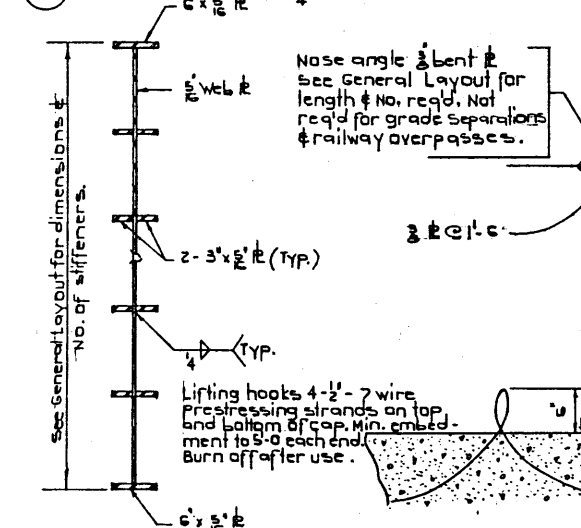 6 x 5/16 ℄
4
Nose angle 3/8" bent ℄
See General Layout for
length & No. req'd. Not
req'd for grade separations
& railway overpasses.
5/16" Web ℄
3/8 ℄ @ 1'-6
2 - 3" x 5/16" ℄ (TYP.)
See General Layout for dimensions &
No. of stiffeners.
1/4 TYP.
Lifting hooks 4-1/2" - 7 wire
prestressing strands on top
and bottom of cap. Min. embed-
ment to 5-0 each end.
Burn off after use.
6" x 5" ℄